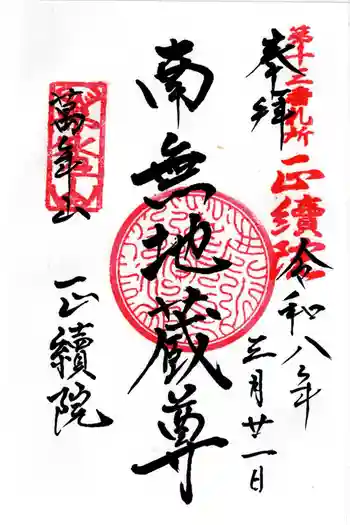 奉拝
第十二番札所
正續院
令和八年
三月廿一日
南無地蔵尊
萬年山
正續院